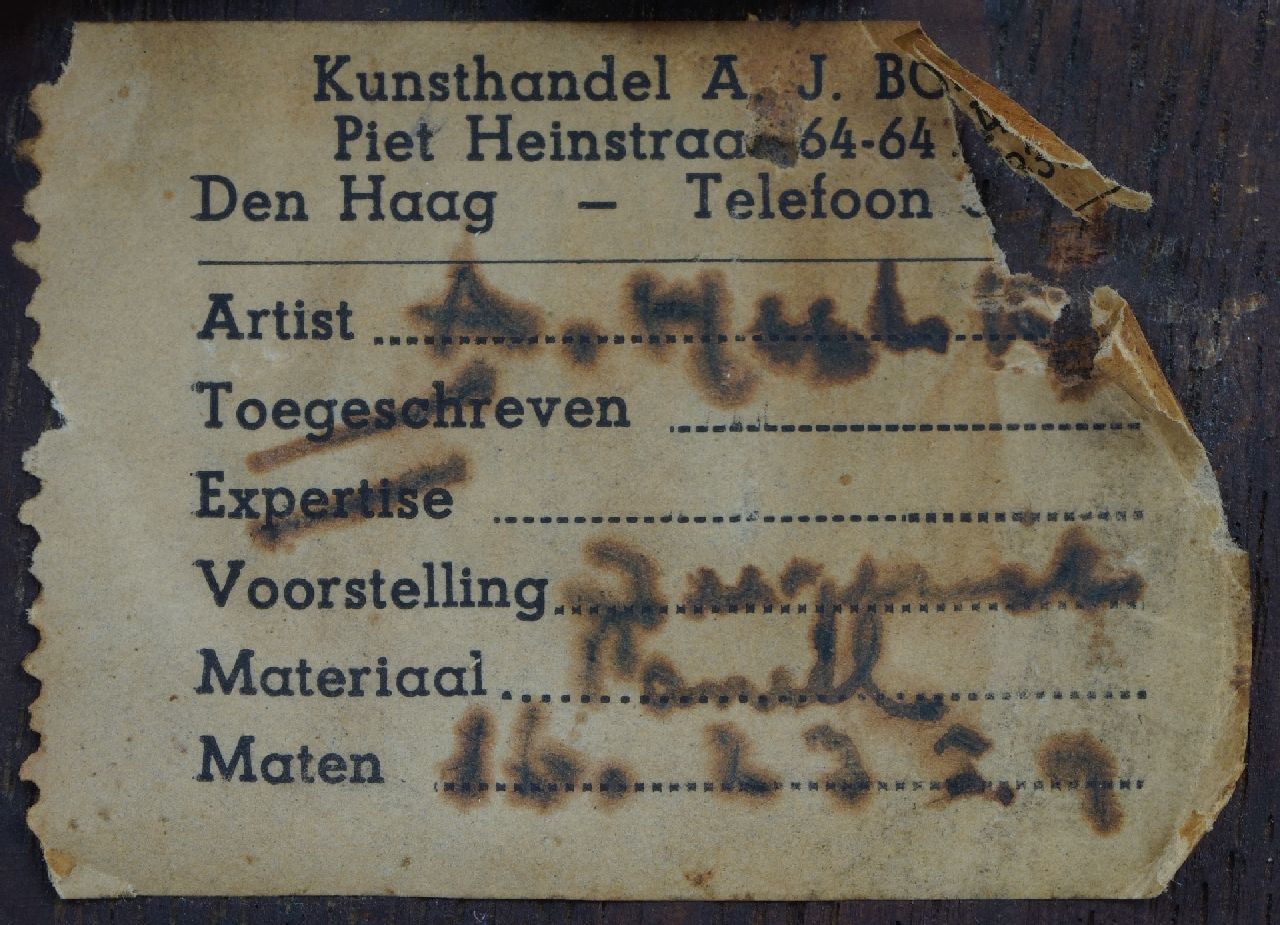 Kunsthandel A. J. BO
Piet Heinstraa 64-64
Den Haag — Telefoon
Artist A.
Toegeschreven
Expertise
Voorstelling
Materiaal Paneel
Maten 16.